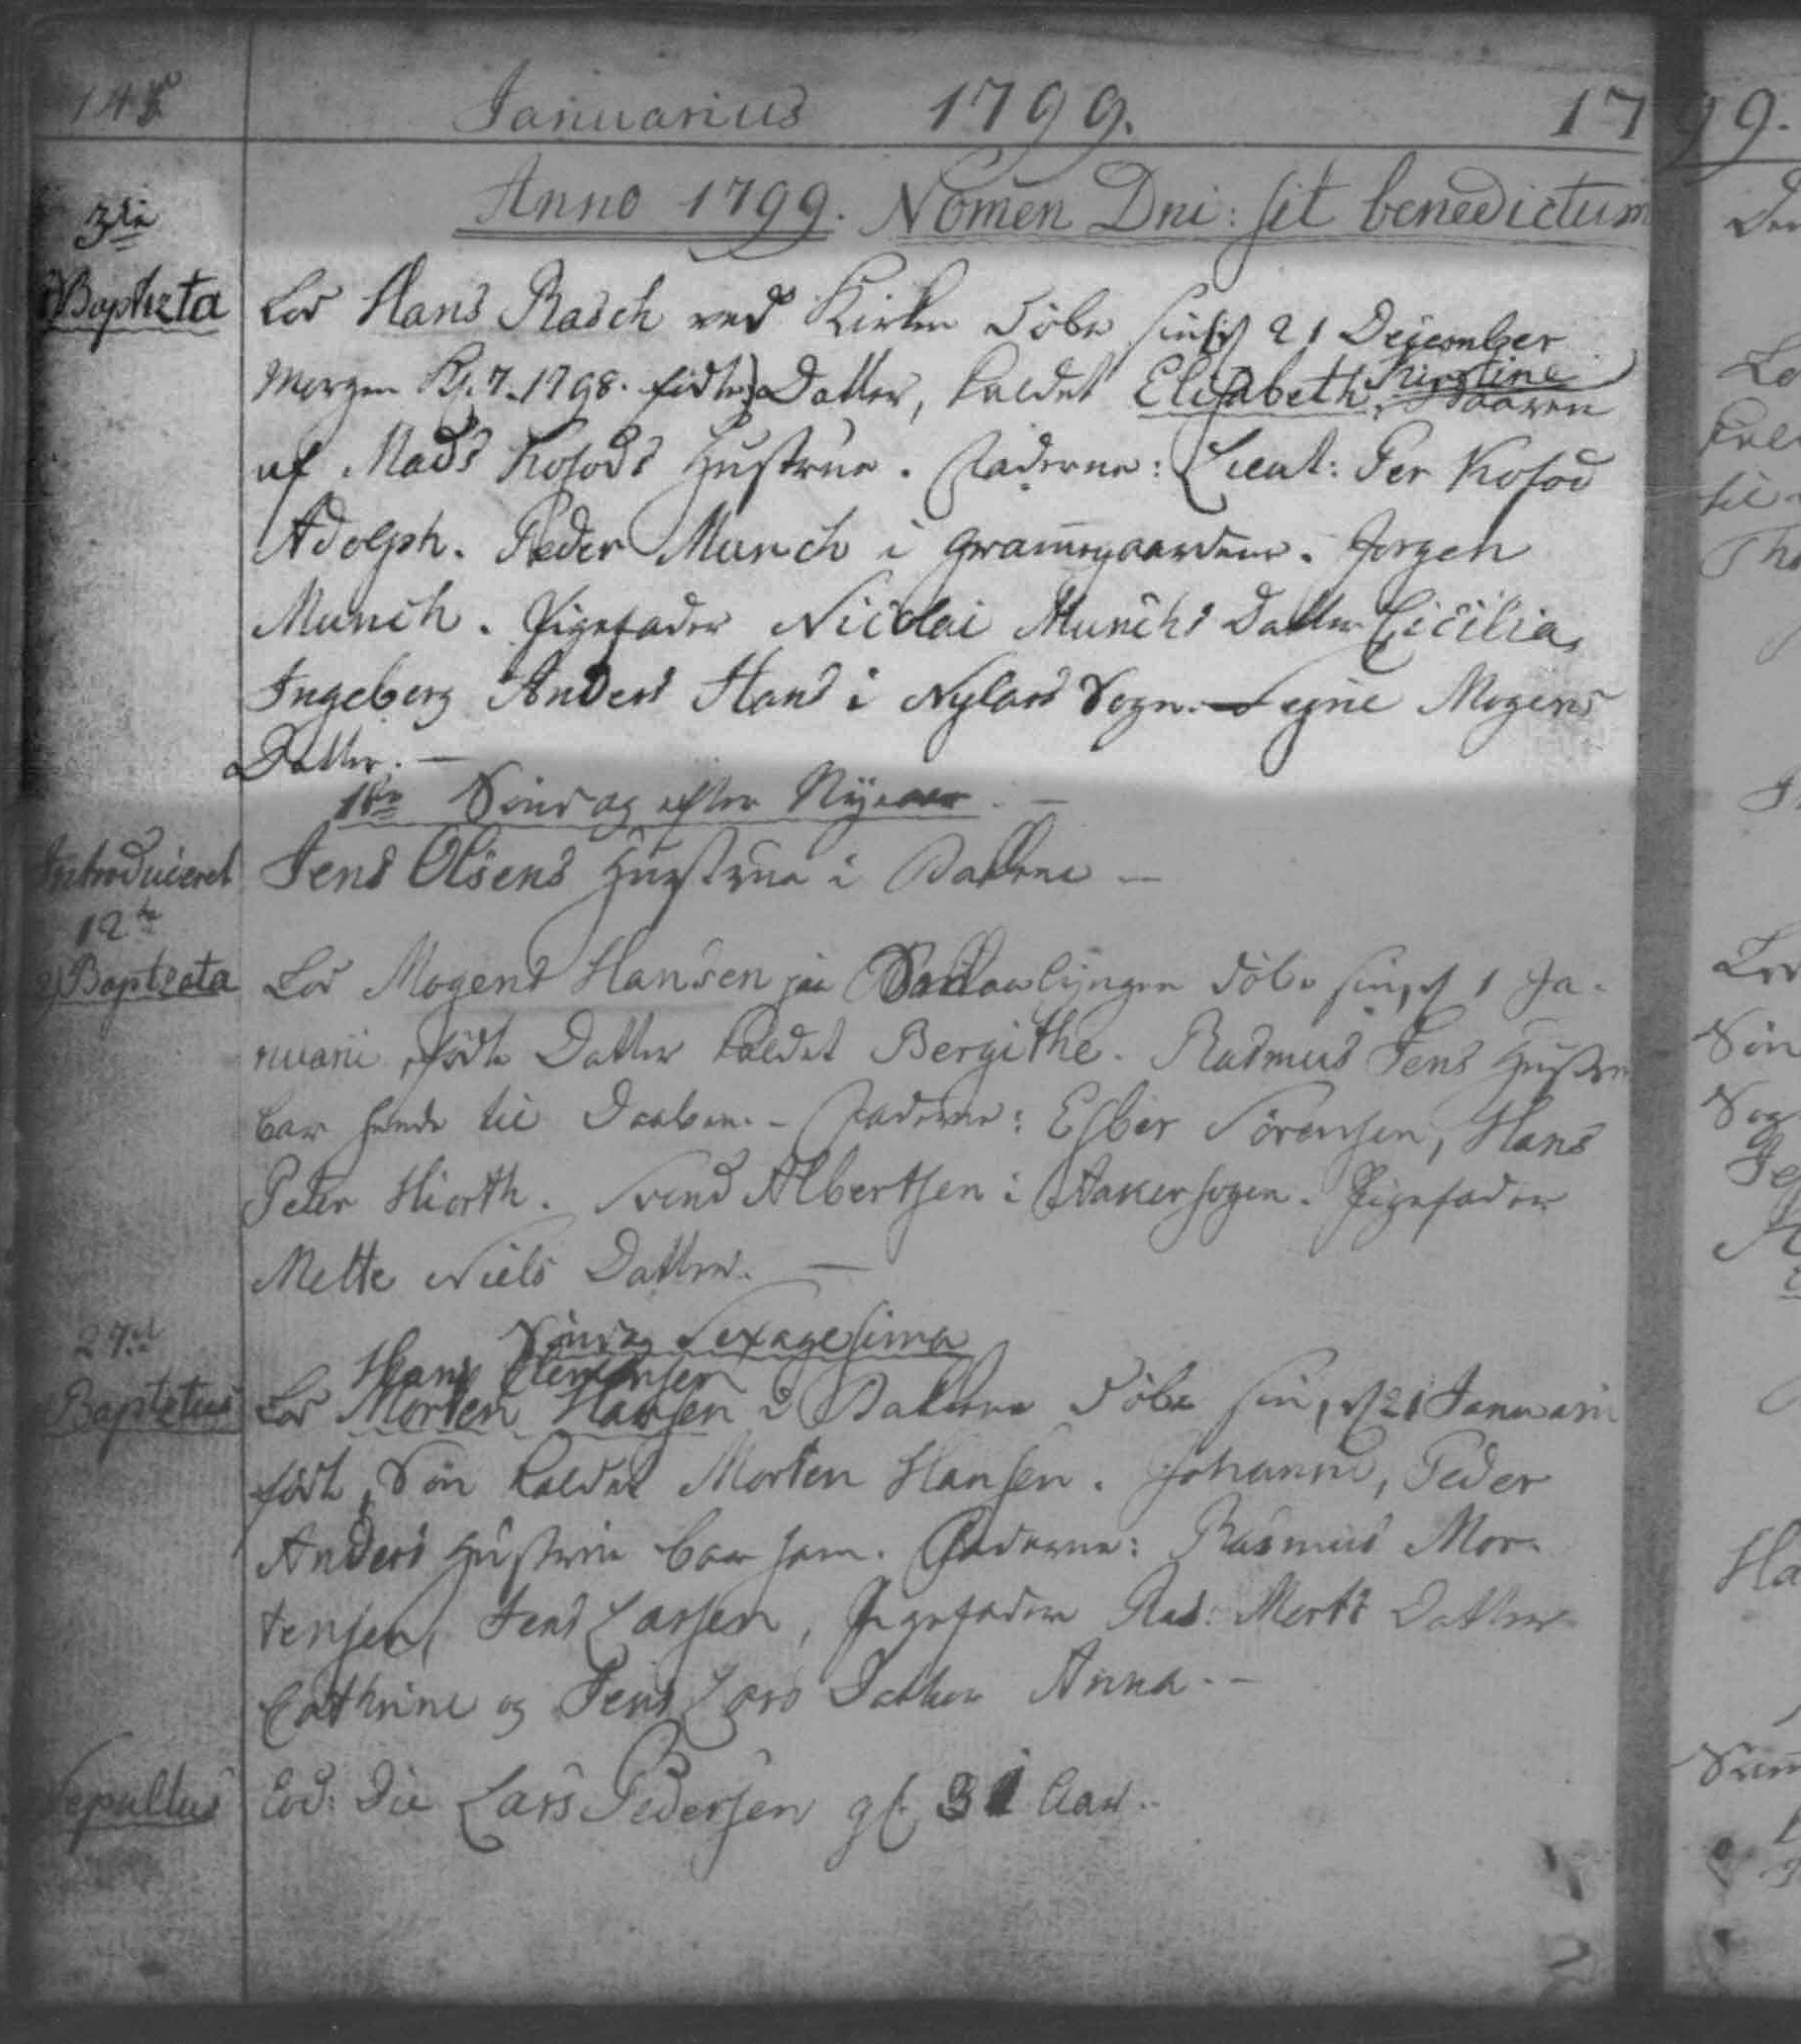 Januarius 1799. 1799.
Anno 1799. Nomen Dni: sit benedictum
3die
1) Baptizta
Lod Hans Rasch ved Kirken døbe sin d 21 December
Morgen Kl. 7. 1798. fødte Datter, kaldet Elisabeth Kirstine, baaren
af Mads Kofods Hustrue. Fadderne: Lieut: Per Kofod
Adolph. Peder Munch i Gramegaarden. Jørgen
Munch. Pigefadder Nicolai Munchs Datter Cicilia,
Ingeborg Anders Hans i Nylars Sogn. Segne Mogens
Datter. —
1ste Søndag efter Nyeaar. —
Introduceret
Jens Olsens Hustrue i —
12te
2) Baptzata
Lod Mogens Hansen paa døbe sin, d 1 Ja-
nuarii fødte Datter kaldet Bergithe. Rasmus Jens Hustrue
bar hende til Daaben. - Fadderne: Esber Sørensen, Hans
Peter Hiorth. Svend Albertsen i Aakersogen. Pigefadder
Mette Niels Datter. —
Søndag Sexagesima
27d
Baptztus
Hans Clemensen
Lod Morten Hansen i døbe sin, d 21 Januarii
født Søn kaldet Morten Hansen. Johanne, Peder
Anders Hustrue bar ham. Fadderne: Rasmus Mor-
tensen, Jens Larsen, Pigefaddere Ras: Morts Datter
Cathrine og Jens Lars Datter Anna. -
Sepultus
Eod: Die Lars Pedersen gl. 31 Aar.